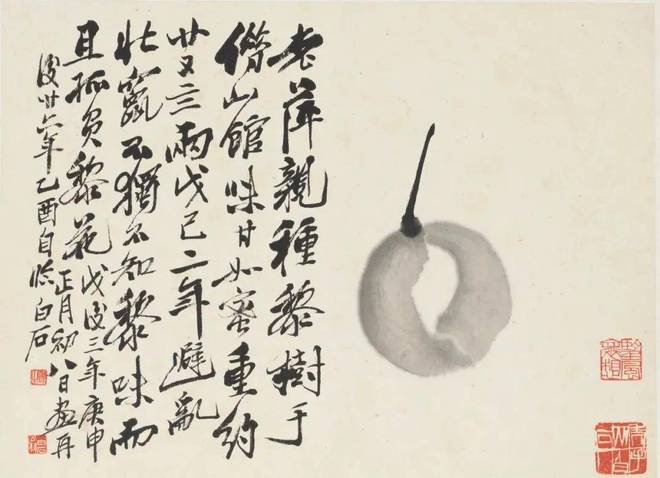 老萍親種黎樹于
借山館味甘如蜜重約
廿又三兩戊己二年避亂
北竄不獨不知黎味而
且孤負黎花戊後三年庚申
正月初八日畫再
後廿六年乙酉自臨白石